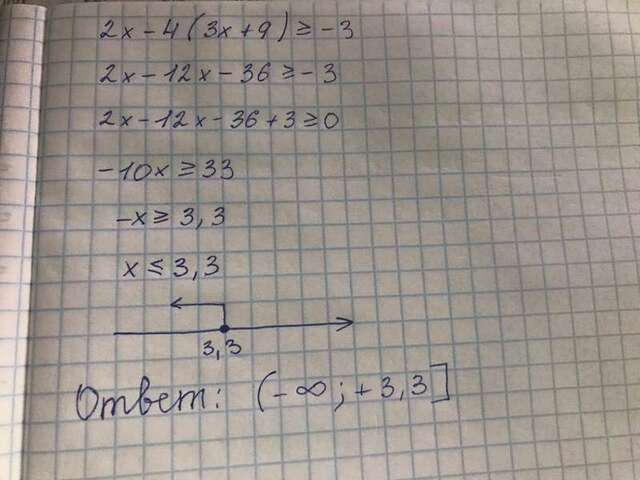 2x-4(3x+9)≥-3
2x-12x-36≥-3
2x-12x-36+3≥0
-10x≥33
-x≥3,3
x≤3,3
3,3
Ответ: (-∞;+3,3]